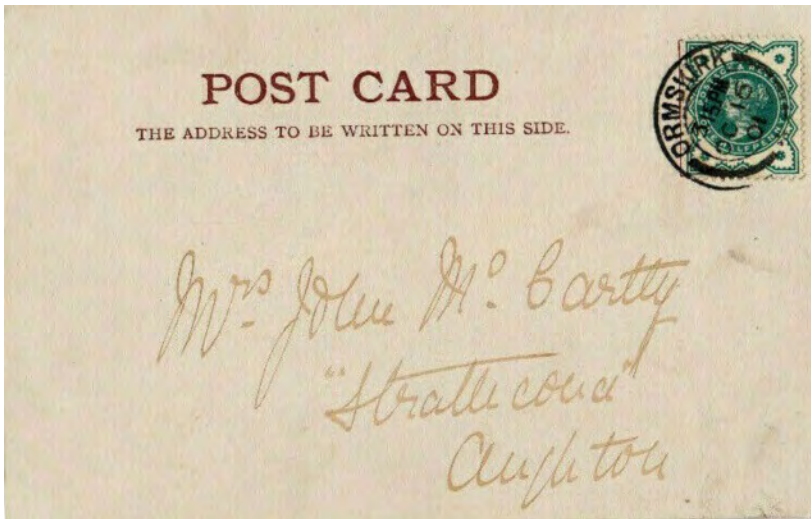 POST CARD
THE ADDRESS TO BE WRITTEN ON THIS SIDE.
ORMSKIRK
Mrs John Mc Cartty
"Strathcona"
Aughton